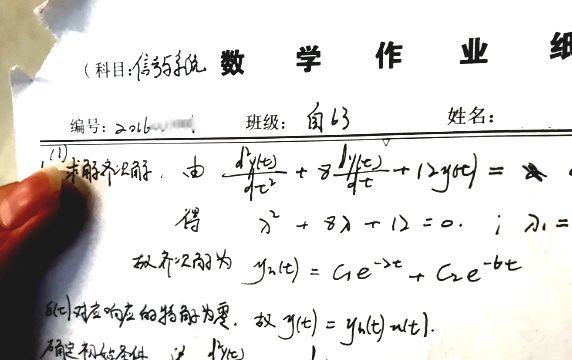 (科目:信号与系统 数学作业纸
编号: 2016 班级: 自63 姓名:
1.(1) 求解齐次解. 由 d²y(t)/dt² + 8 dy(t)/dt + 12y(t) =
得 λ² + 8λ + 12 = 0. ; λ₁ =
故齐次解为 yₕ(t) = C₁e^{-2t} + C₂e^{-6t}
δ(t)对应响应的特解为零. 故 y(t) = yₕ(t)u(t).
确定初始条件 d²y(t)